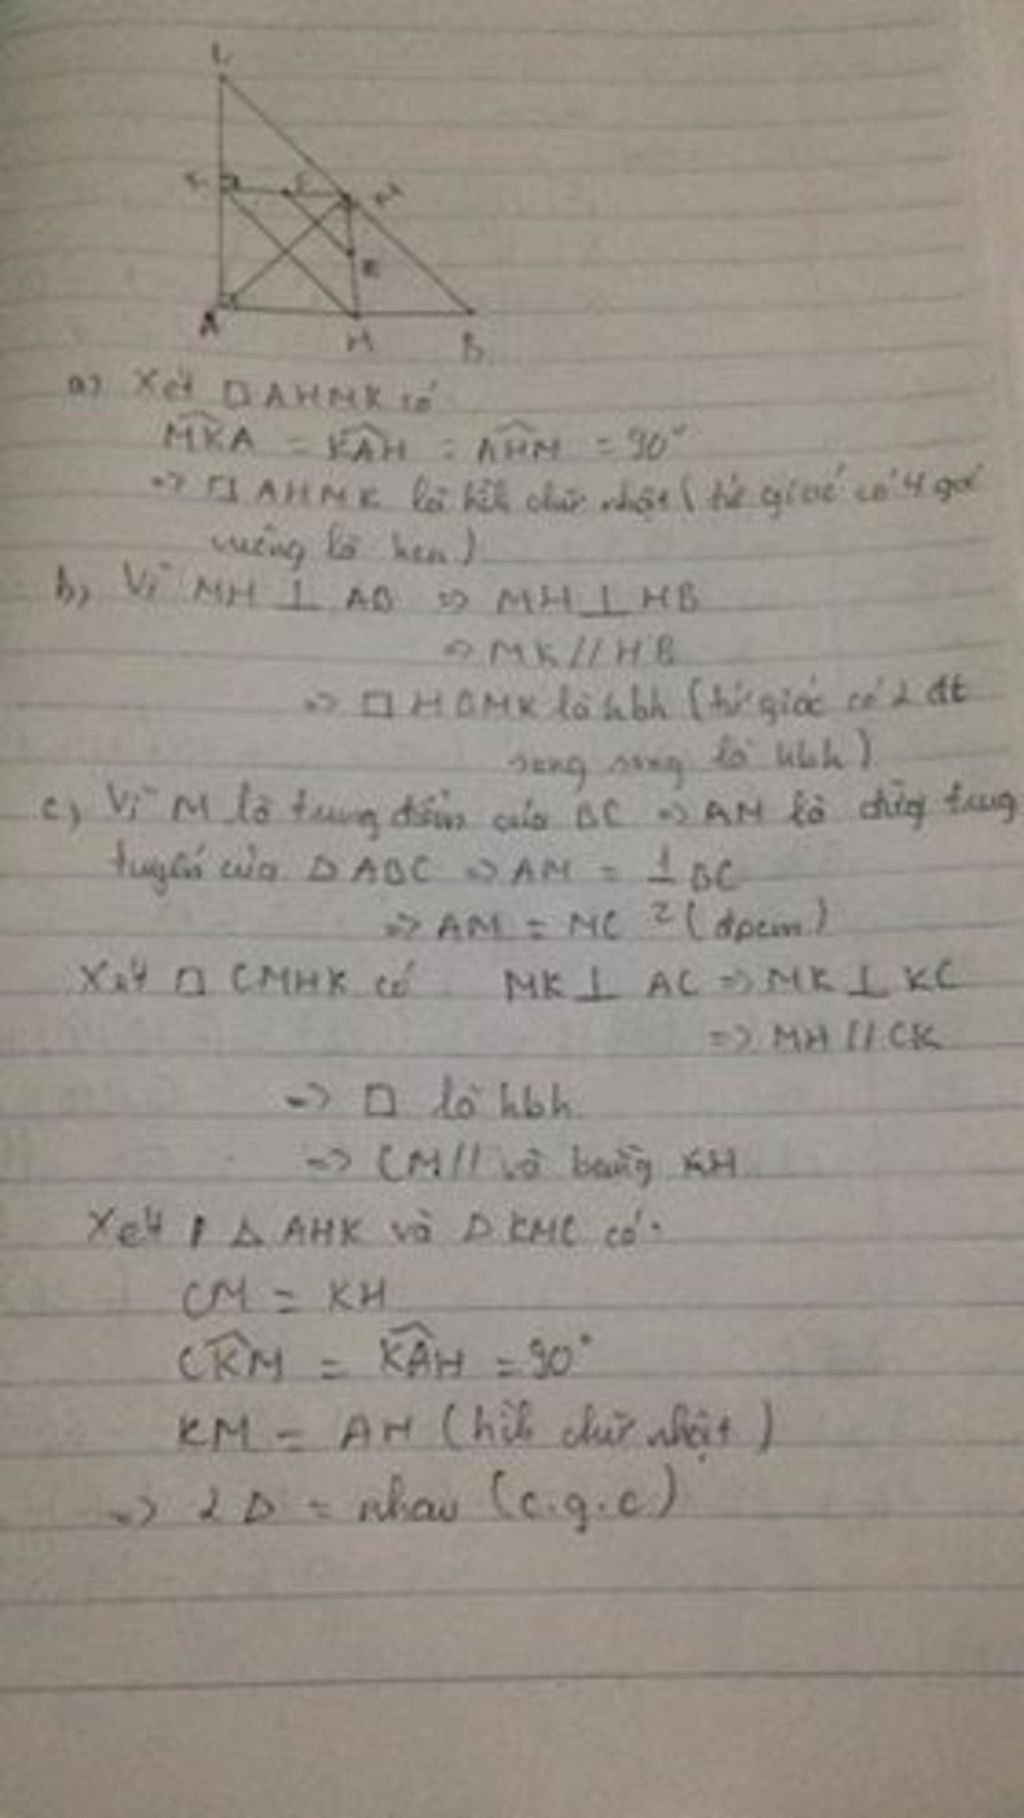 K
M
E
A
H
B
a) Xét □ AHMK có
MKA = KAH = AHM = 90°
=> □ AHMK là hìh chữ nhật (tứ giác có 4 gó
vuông là hcn)
b) Vì MH ⊥ AB => MH ⊥ HB
=> MK // HB
=> □ HBMK là hbh (tứ giác có 2 đt
song song là hbh)
c) Vì M là trung điểm của BC => AM là đườg trug
tuyến của Δ ABC => AM = 1/2 BC
=> AM = MC (đpcm)
Xét □ CMHK có MK ⊥ AC => MK ⊥ KC
=> MH // CK
=> □ là hbh
=> CM // và bằng KH
Xét Δ AHK và Δ KMC có
CM = KH
CKM = KAH = 90°
KM = AH (hìh chữ nhật)
=> 2 Δ = nhau (c.g.c)